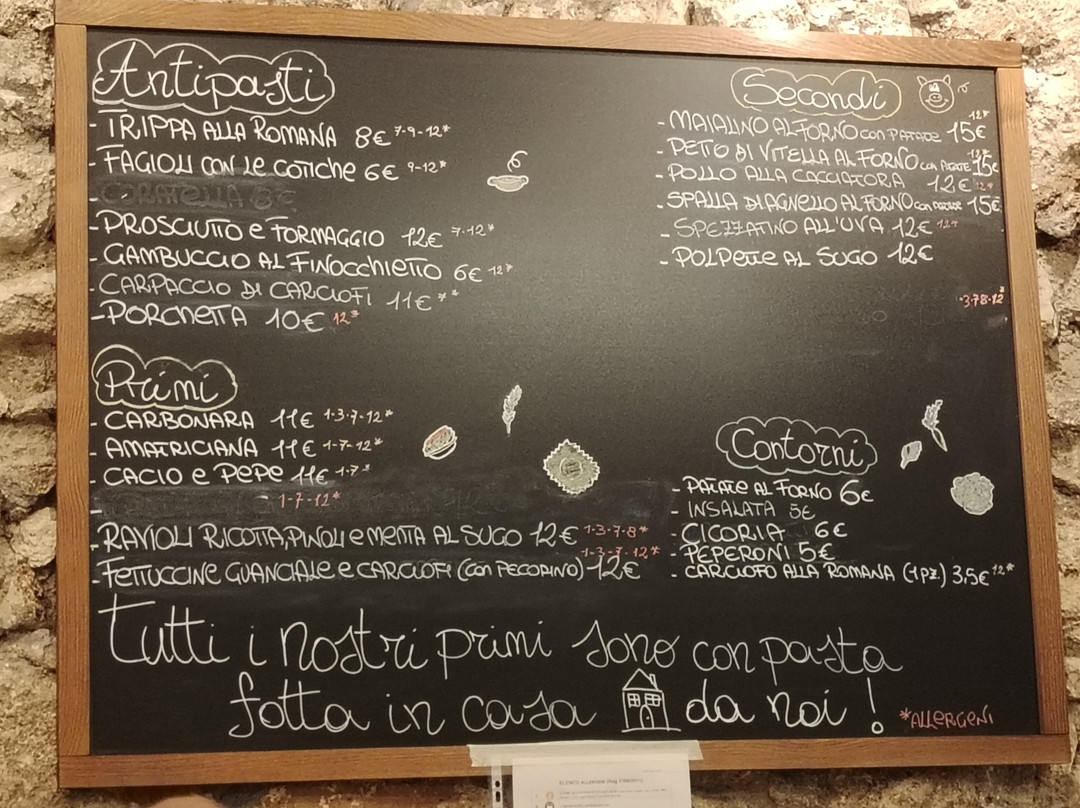 Antipasti
- TRIPPA ALLA ROMANA 8€ 7-9-12*
- FAGIOLI CON LE COTICHE 6€ 9-12*
- CORATELLA 8€
- PROSCIUTTO e FORMAGGIO 12€ 7-12*
- GAMBUCCIO AL FINOCCHIETTO 6€ 12*
- CARPACCIO DI CARCIOFI 11€ 7*
- PORCHETTA 10€ 12*
Primi
- CARBONARA 11€ 1-3-7-12*
- AMATRICIANA 11€ 1-7-12*
- CACIO e PEPE 11€ 1-7*
- 1-7-12*
- RAVIOLI RICOTTA, PINOLI e MENTA AL SUGO 12€ 1-3-7-8*
- FETTUCCINE GUANCIALE e CARCIOFI (con PECORINO) 12€ 1-3-7-12*
Secondi
- MAIALINO AL FORNO con PATATE 15€ 12*
- PETTO DI VITELLA AL FORNO con PATATE 15€ 12*
- POLLO ALLA CACCIATORA 12€ 12*
- SPALLA DI AGNELLO AL FORNO con PATATE 15€
- SPEZZATINO ALL'UVA 12€ 12*
- POLPETTE AL SUGO 12€
-3-7-8-12*
Contorni
- PATATE AL FORNO 6€
- INSALATA 5€
- CICORIA 6€
- PEPERONI 5€
- CARCIOFO ALLA ROMANA (1 PZ.) 3.5€ 12*
Tutti i nostri primi sono con pasta
fatta in casa da noi!
*ALLERGENI
ELENCO ALLERGENI